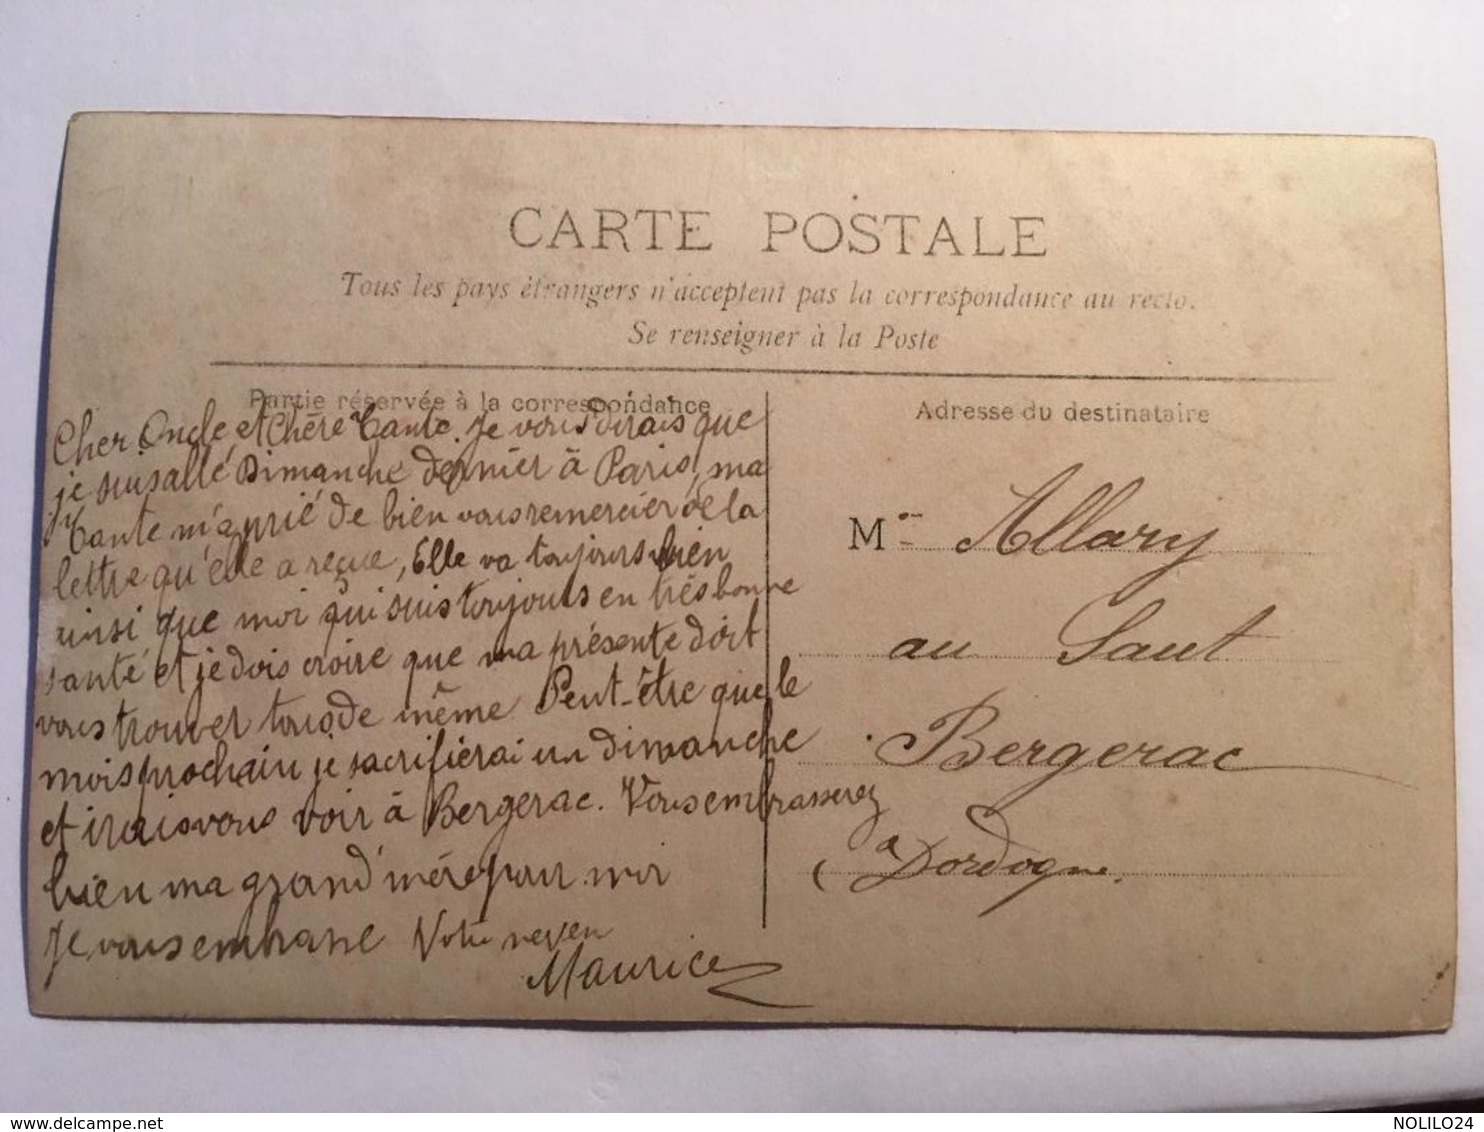 CARTE POSTALE
Tous les pays étrangers n'acceptent pas la correspondance au recto.
Se renseigner à la Poste
Partie réservée à la correspondance
Cher Oncle et Chère Tante. Je vous dirais que
je suis allé Dimanche dernier à Paris, ma
Tante m'a prié de bien vous remercier de la
lettre qu'elle a reçue, Elle va toujours bien
ainsi que moi qui suis toujours en très bonne
santé et je dois croire que ma présente doit
vous trouver tous de même Peut-être que le
mois prochain je sacrifierai un dimanche
et irais vous voir à Bergerac. Vous embrasserez
bien ma grand'mère pour moi
Je vous embrasse Votre neveu
Maurice
Adresse du destinataire
M Allary
au Saut
Bergerac
Dordogne.
NOLILO24